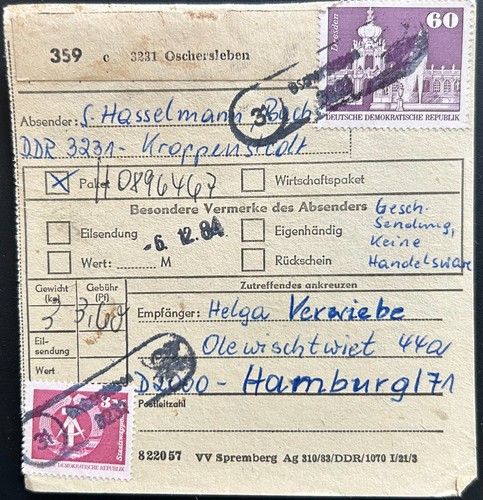 359 c 3231 Oschersleben
Dresden 60
DEUTSCHE DEMOKRATISCHE REPUBLIK
Absender: S. Hasselmann Buch
DDR 3231 - Kroppenstedt
Paket H 0896467 Wirtschaftspaket
Besondere Vermerke des Absenders
Gesch.
Sendung,
Keine
Handelsware
Eilsendung
-6. 12. 84
Eigenhändig
Wert: ........ M
Rückschein
Gewicht (kg)
Gebühr (Pf)
Zutreffendes ankreuzen
3 3,60
Empfänger: Helga Verwiebe
Eil-
sendung
Olewischtwiet 44a
Wert
D2000 - Hamburg 71
Postleitzahl
Staatswappen
DEMOKRATISCHE REPUBLIK
8 220 57 VV Spremberg Ag 310/83/DDR/1070 I/21/3